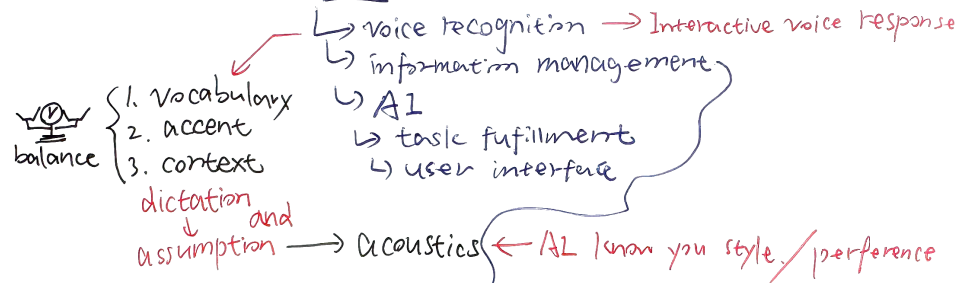 voice recognition → Interactive voice response
information management
AI
task fufillment
user interface
1. vocabulary
2. accent
3. context
balance
dictation
and
assumption → acoustics ← AI know you style./perference